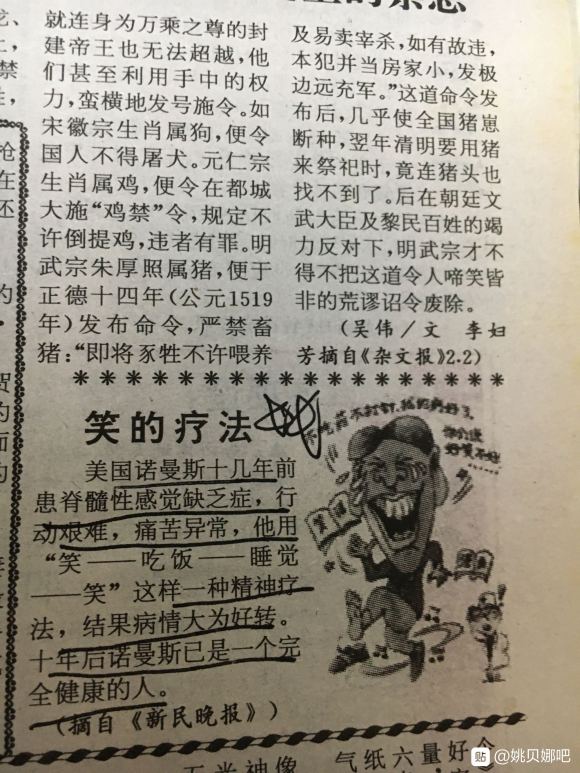 就连身为万乘之尊的封
建帝王也无法超越，他
们甚至利用手中的权
力，蛮横地发号施令。如
宋徽宗生肖属狗，便令
国人不得屠犬。元仁宗
生肖属鸡，便令在都城
大施“鸡禁”令，规定不
许倒提鸡，违者有罪。明
武宗朱厚照属猪，便于
正德十四年（公元1519
年）发布命令，严禁畜
猪：“即将豕牲不许喂养
及易卖宰杀，如有故违，
本犯并当房家小，发极
边远充军。”这道命令发
布后，几乎使全国猪崽
断种，翌年清明要用猪
来祭祀时，竟连猪头也
找不到了。后在朝廷文
武大臣及黎民百姓的竭
力反对下，明武宗才不
得不把这道令人啼笑皆
非的荒谬诏令废除。
（吴伟／文 李妇
芳摘自《杂文报》2.2）
＊＊＊＊＊＊＊＊＊＊＊＊＊＊＊＊＊＊＊＊＊＊
笑的疗法
美国诺曼斯十几年前
患脊髓性感觉缺乏症，行
动艰难，痛苦异常，他用
“笑——吃饭——睡觉
——笑”这样一种精神疗
法，结果病情大为好转。
十年后诺曼斯已是一个完
全健康的人。
（摘自《新民晚报》）
不吃药不打针，我的病好了，
你们说
好笑不好
气纸六量好个
贴 @姚贝娜吧